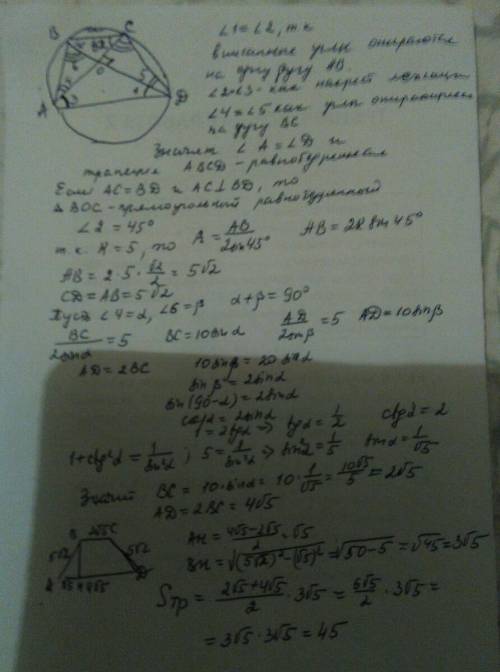 B C
A O D
∠1=∠2, т.к.
вписанные углы опираются
на одну дугу AB.
∠2=∠3 - как накрест лежащие
∠4=∠5 как углы опирающиеся
на дугу BC
Значит ∠A=∠D и
трапеция ABCD - равнобедренная
Если AC=BD и AC⊥BD, то
△BOC - прямоугольный равнобедренный
∠2=45°
т.к. R=5, то R=AB/2sin45° AB=2R sin45°
AB=2·5·√2/2=5√2
CD=AB=5√2
Пусть ∠4=α, ∠6=β α+β=90°
BC/2sinα=5 BC=10sinα AD/2sinβ=5 AD=10sinβ
AD=2BC 10sinβ=20sinα
sinβ=2sinα
sin(90-α)=2sinα
cosα=2sinα
1=2tgα => tgα=1/2 ctgα=2
1+ctg²α=1/sin²α ; 5=1/sin²α => sin²α=1/5 sinα=1/√5
Значит BC=10·sinα=10·1/√5=10√5/5=2√5
AD=2BC=4√5
B 2√5 C
5√2 5√2
A √5 H 4√5 D
AH=(4√5-2√5)/2=√5
BH=√((5√2)²-(√5)²)=√(50-5)=√45=3√5
Sтр=(2√5+4√5)/2·3√5=6√5/2·3√5=
=3√5·3√5=45